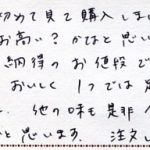 初めて見て購入しま
お高い?かなと思い
納得のお値段で
おいしく1つでは足
他の味も是非
と思います. 注文し